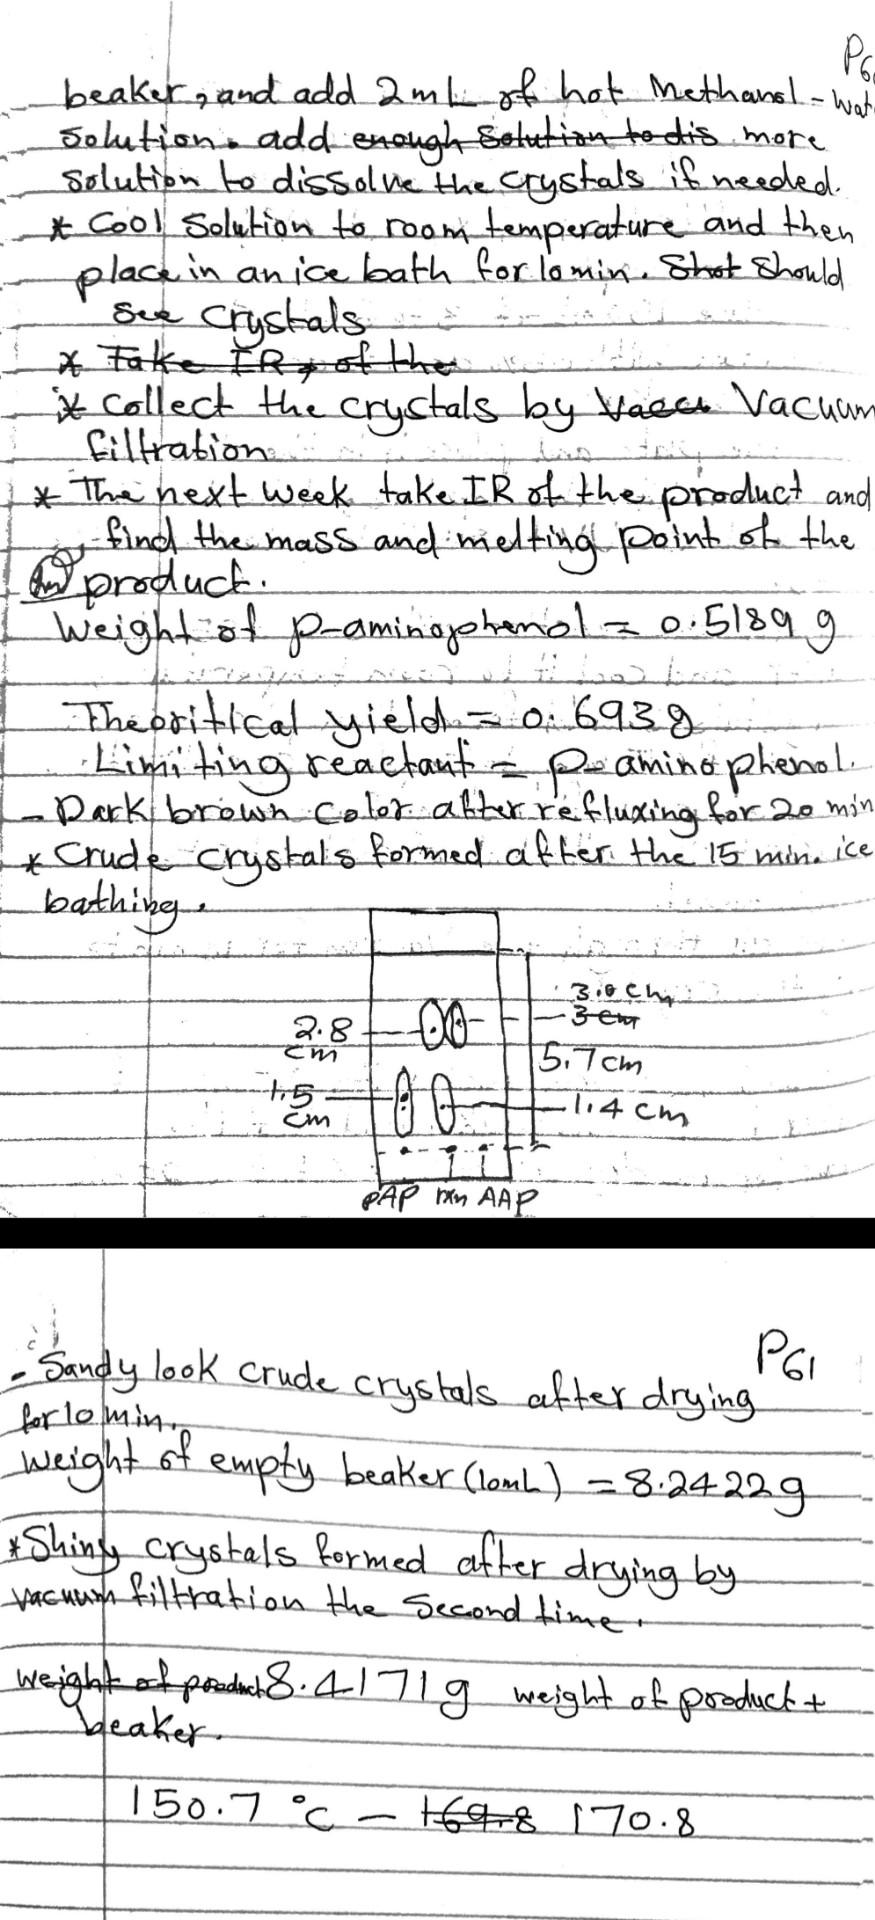 P6
beaker, and add 2 mL of hot Methanol - Wat
Solution. add enough Solution to dis more
Solution to dissolve the crystals if needed.
* Cool Solution to room temperature and then
place in an ice bath for 10 min. Shot Should
See Crystals
* Take IR, of the
* Collect the crystals by Vacu Vacuum
filtration
* The next week take IR of the product and
find the mass and melting point of the
product.
Weight of p-aminophenol = 0.5189 g
Theoritical yield = 0.693g
Limiting reactant = p-aminophenol.
- Dark brown color after refluxing for 20 min
* Crude crystals formed after the 15 min. ice
bathing.
3.0 cm
3 cm
2.8
cm
5.7cm
1.5
cm
1.4 cm
PAP rxn AAP
P61
- Sandy look crude crystals after drying
for 10 min.
Weight of empty beaker (10mL) = 8.2422g
* Shiny crystals formed after drying by
vacuum filtration the second time.
weight of product 8.4171g weight of product +
beaker.
150.7 °C - 169.8 170.8